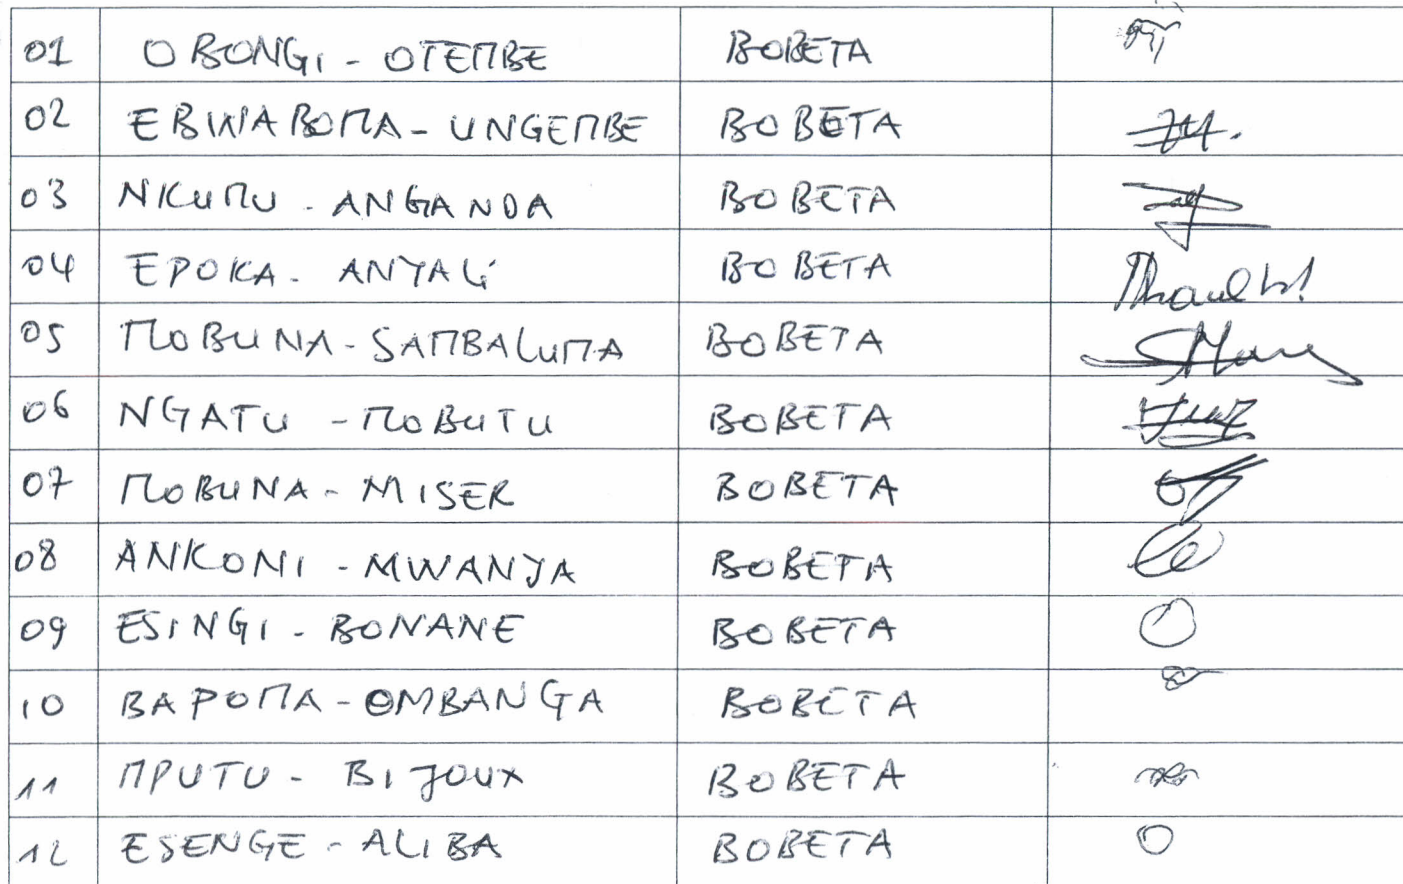 01 OBONGI - OTEMBE BOBETA
02 EBWABOMA - UNGEMBE BOBETA
03 NKUMU - ANGANDA BOBETA
04 EPOKA - ANYALI BOBETA
05 MOBUNA - SAMBALUMA BOBETA
06 NGATU - MOBUTU BOBETA
07 MOBUNA - MISER BOBETA
08 ANKONI - MWANYA BOBETA
09 ESINGI - BONANE BOBETA
10 BAPOMA - OMBANGA BOBETA
11 MPUTU - BIJOUX BOBETA
12 ESENGE - ALIBA BOBETA